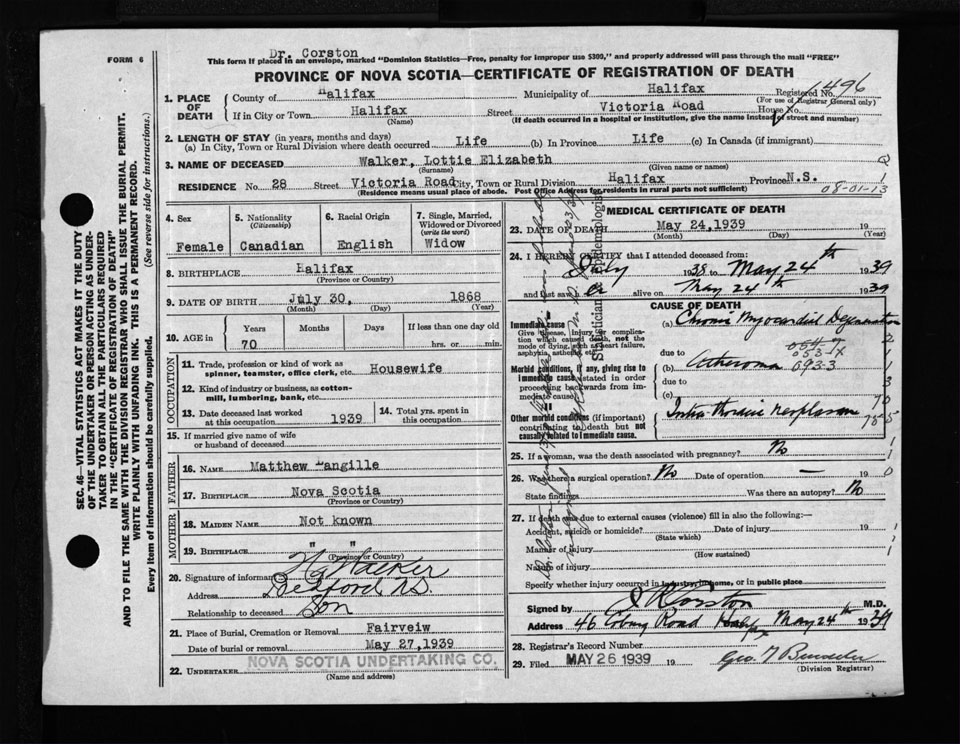 FORM 6
Dr. Corston
This form if placed in an envelope, marked "Dominion Statistics—Free, penalty for improper use $300," and properly addressed will pass through the mail "FREE"
PROVINCE OF NOVA SCOTIA—CERTIFICATE OF REGISTRATION OF DEATH
1. PLACE OF DEATH
County of Halifax
Municipality of Halifax
Registered No. 1496
(For use of Registrar General only)
If in City or Town. Halifax
(Name)
Street Victoria Road House No.
(If death occurred in a hospital or institution, give the name instead of street and number)
2. LENGTH OF STAY (in years, months and days)
(a) In City, Town or Rural Division where death occurred Life (b) In Province Life (c) In Canada (if immigrant)
3. NAME OF DECEASED Walker, Lottie Elizabeth
(Surname) (Given name or names)
RESIDENCE No. 28 Street Victoria Road City, Town or Rural Division Halifax Province N.S.
(Residence means usual place of abode. Post Office Address for residents in rural parts not sufficient)
08-01-13
4. Sex
Female
5. Nationality
(Citizenship)
Canadian
6. Racial Origin
English
7. Single, Married, Widowed or Divorced
(write the word)
Widow
8. BIRTHPLACE Halifax
(Province or Country)
9. DATE OF BIRTH July 30, 1868
(Month) (Day) (Year)
10. AGE in
Years Months Days If less than one day old
70 hrs. or min.
OCCUPATION
11. Trade, profession or kind of work as spinner, teamster, office clerk, etc. Housewife
12. Kind of industry or business, as cotton-mill, lumbering, bank, etc.
13. Date deceased last worked at this occupation 1939
14. Total yrs. spent in this occupation
15. If married give name of wife or husband of deceased
FATHER
16. NAME Matthew Langille
17. BIRTHPLACE Nova Scotia
(Province or Country)
MOTHER
18. MAIDEN NAME Not known
19. BIRTHPLACE " "
(Province or Country)
20. Signature of informant Walker
Address Bedford N.S.
Relationship to deceased Son
21. Place of Burial, Cremation or Removal Fairveiw
Date of burial or removal May 27, 1939
22. UNDERTAKER NOVA SCOTIA UNDERTAKING CO.
(Name and address)
MEDICAL CERTIFICATE OF DEATH
23. DATE OF DEATH May 24, 1939
(Month) (Day) (Year)
24. I HEREBY CERTIFY that I attended deceased from:
July 1938 to May 24th 1939
and last saw her alive on May 24th 1939
CAUSE OF DEATH
Immediate cause
Give disease, injury or complication which caused death, not the mode of dying, such as heart failure, asphyxia, asthenia, etc.
(a) Chronic Myocardial Degeneration
due to
Morbid conditions, if any, giving rise to immediate cause stated in order proceeding backwards from immediate cause
(b) Atheroma 093-3
due to
(c)
Other morbid conditions (if important) contributing to death but not causally related to immediate cause
Intra-thoracic neoplasm
25. If a woman, was the death associated with pregnancy? No
26. Was there a surgical operation? No Date of operation — 19
State findings Was there an autopsy? No
27. If death was due to external causes (violence) fill in also the following:—
Accident, suicide or homicide? Date of injury 19
(State which)
Manner of injury
(How sustained)
Nature of injury
Specify whether injury occurred in industry, in home, or in public place
Signed by Corston M.D.
Address 46 Coburg Road Halifax May 24th 1939
28. Registrar's Record Number
29. Filed MAY 26 1939 19
(Division Registrar)
Statistician Epidemiologist
SEC. 46—VITAL STATISTICS ACT MAKES IT THE DUTY
OF THE UNDERTAKER OR PERSON ACTING AS UNDER-
TAKER TO OBTAIN ALL THE PARTICULARS REQUIRED
IN THE "CERTIFICATE OF REGISTRATION OF DEATH"
AND TO FILE THE SAME WITH THE DIVISION REGISTRAR WHO SHALL ISSUE THE BURIAL PERMIT.
WRITE PLAINLY WITH UNFADING INK. THIS IS A PERMANENT RECORD.
Every item of information should be carefully supplied. (See reverse side for instructions.)